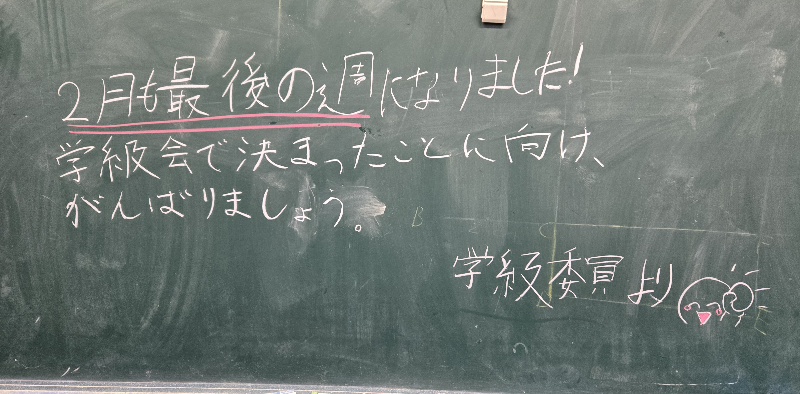 2月も最後の週になりました!
学級会で決まったことに向け、
がんばりましょう。
学級委員より